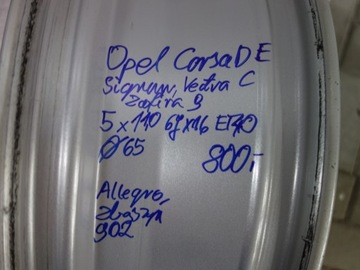 Opel Corsa D E
Signum, Vectra C
Zafira B
5x110 6Jx16 ET40
Ø65
800,-
Allegro,
zbaszyn
902